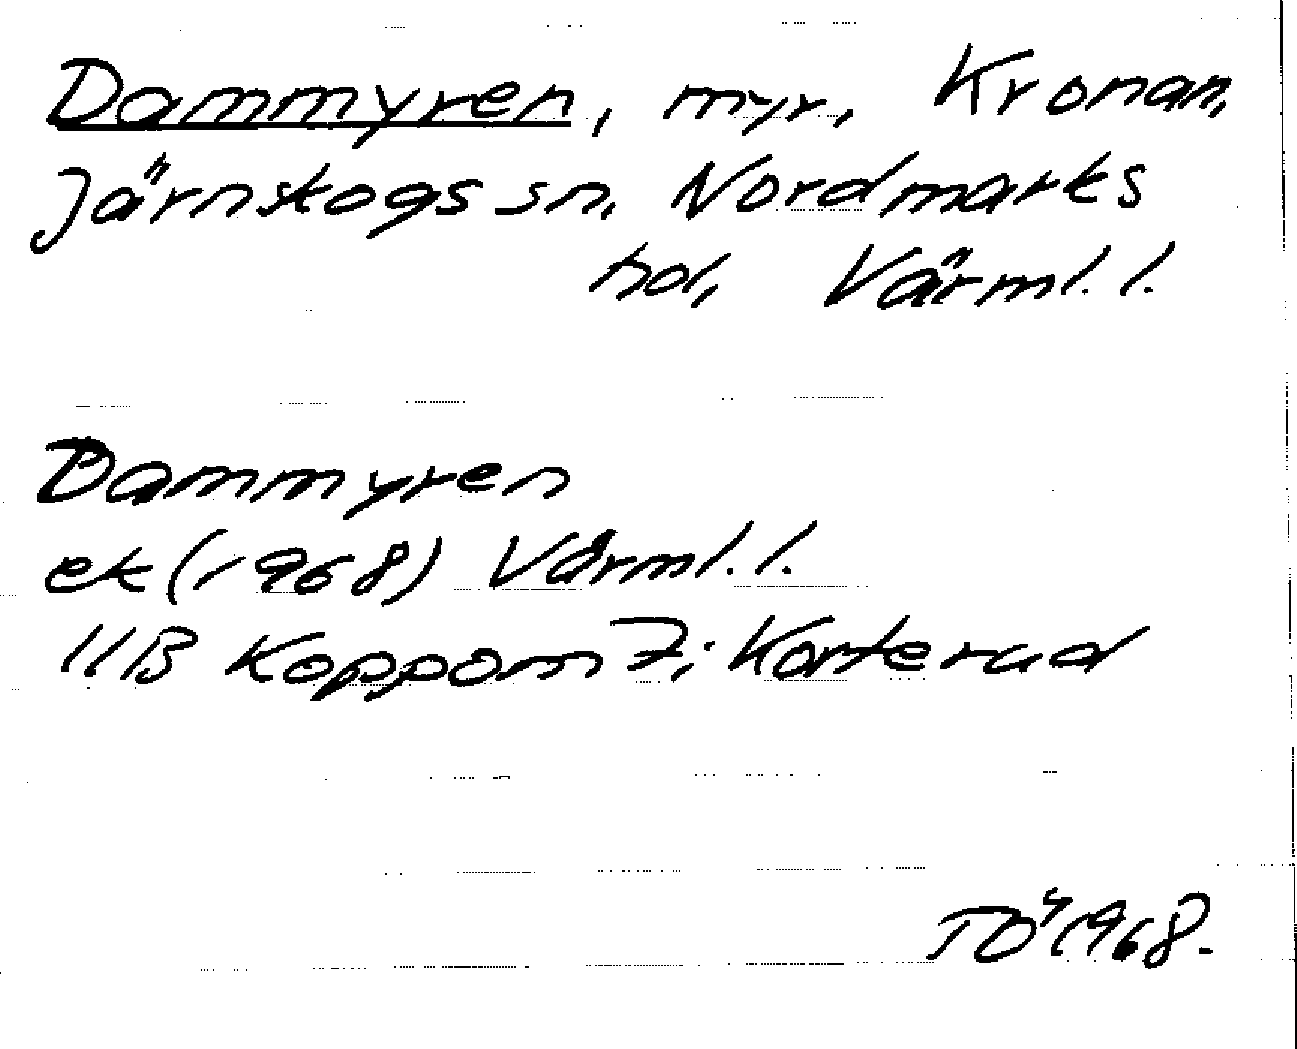 Dammyren, myr, Kronan,
Järnskogs sn, Nordmarks
hd, Värml. l.
Dammyren
ek (1968) Värml. l.
11B Koppom 7; Korterud
TÖ 1968.